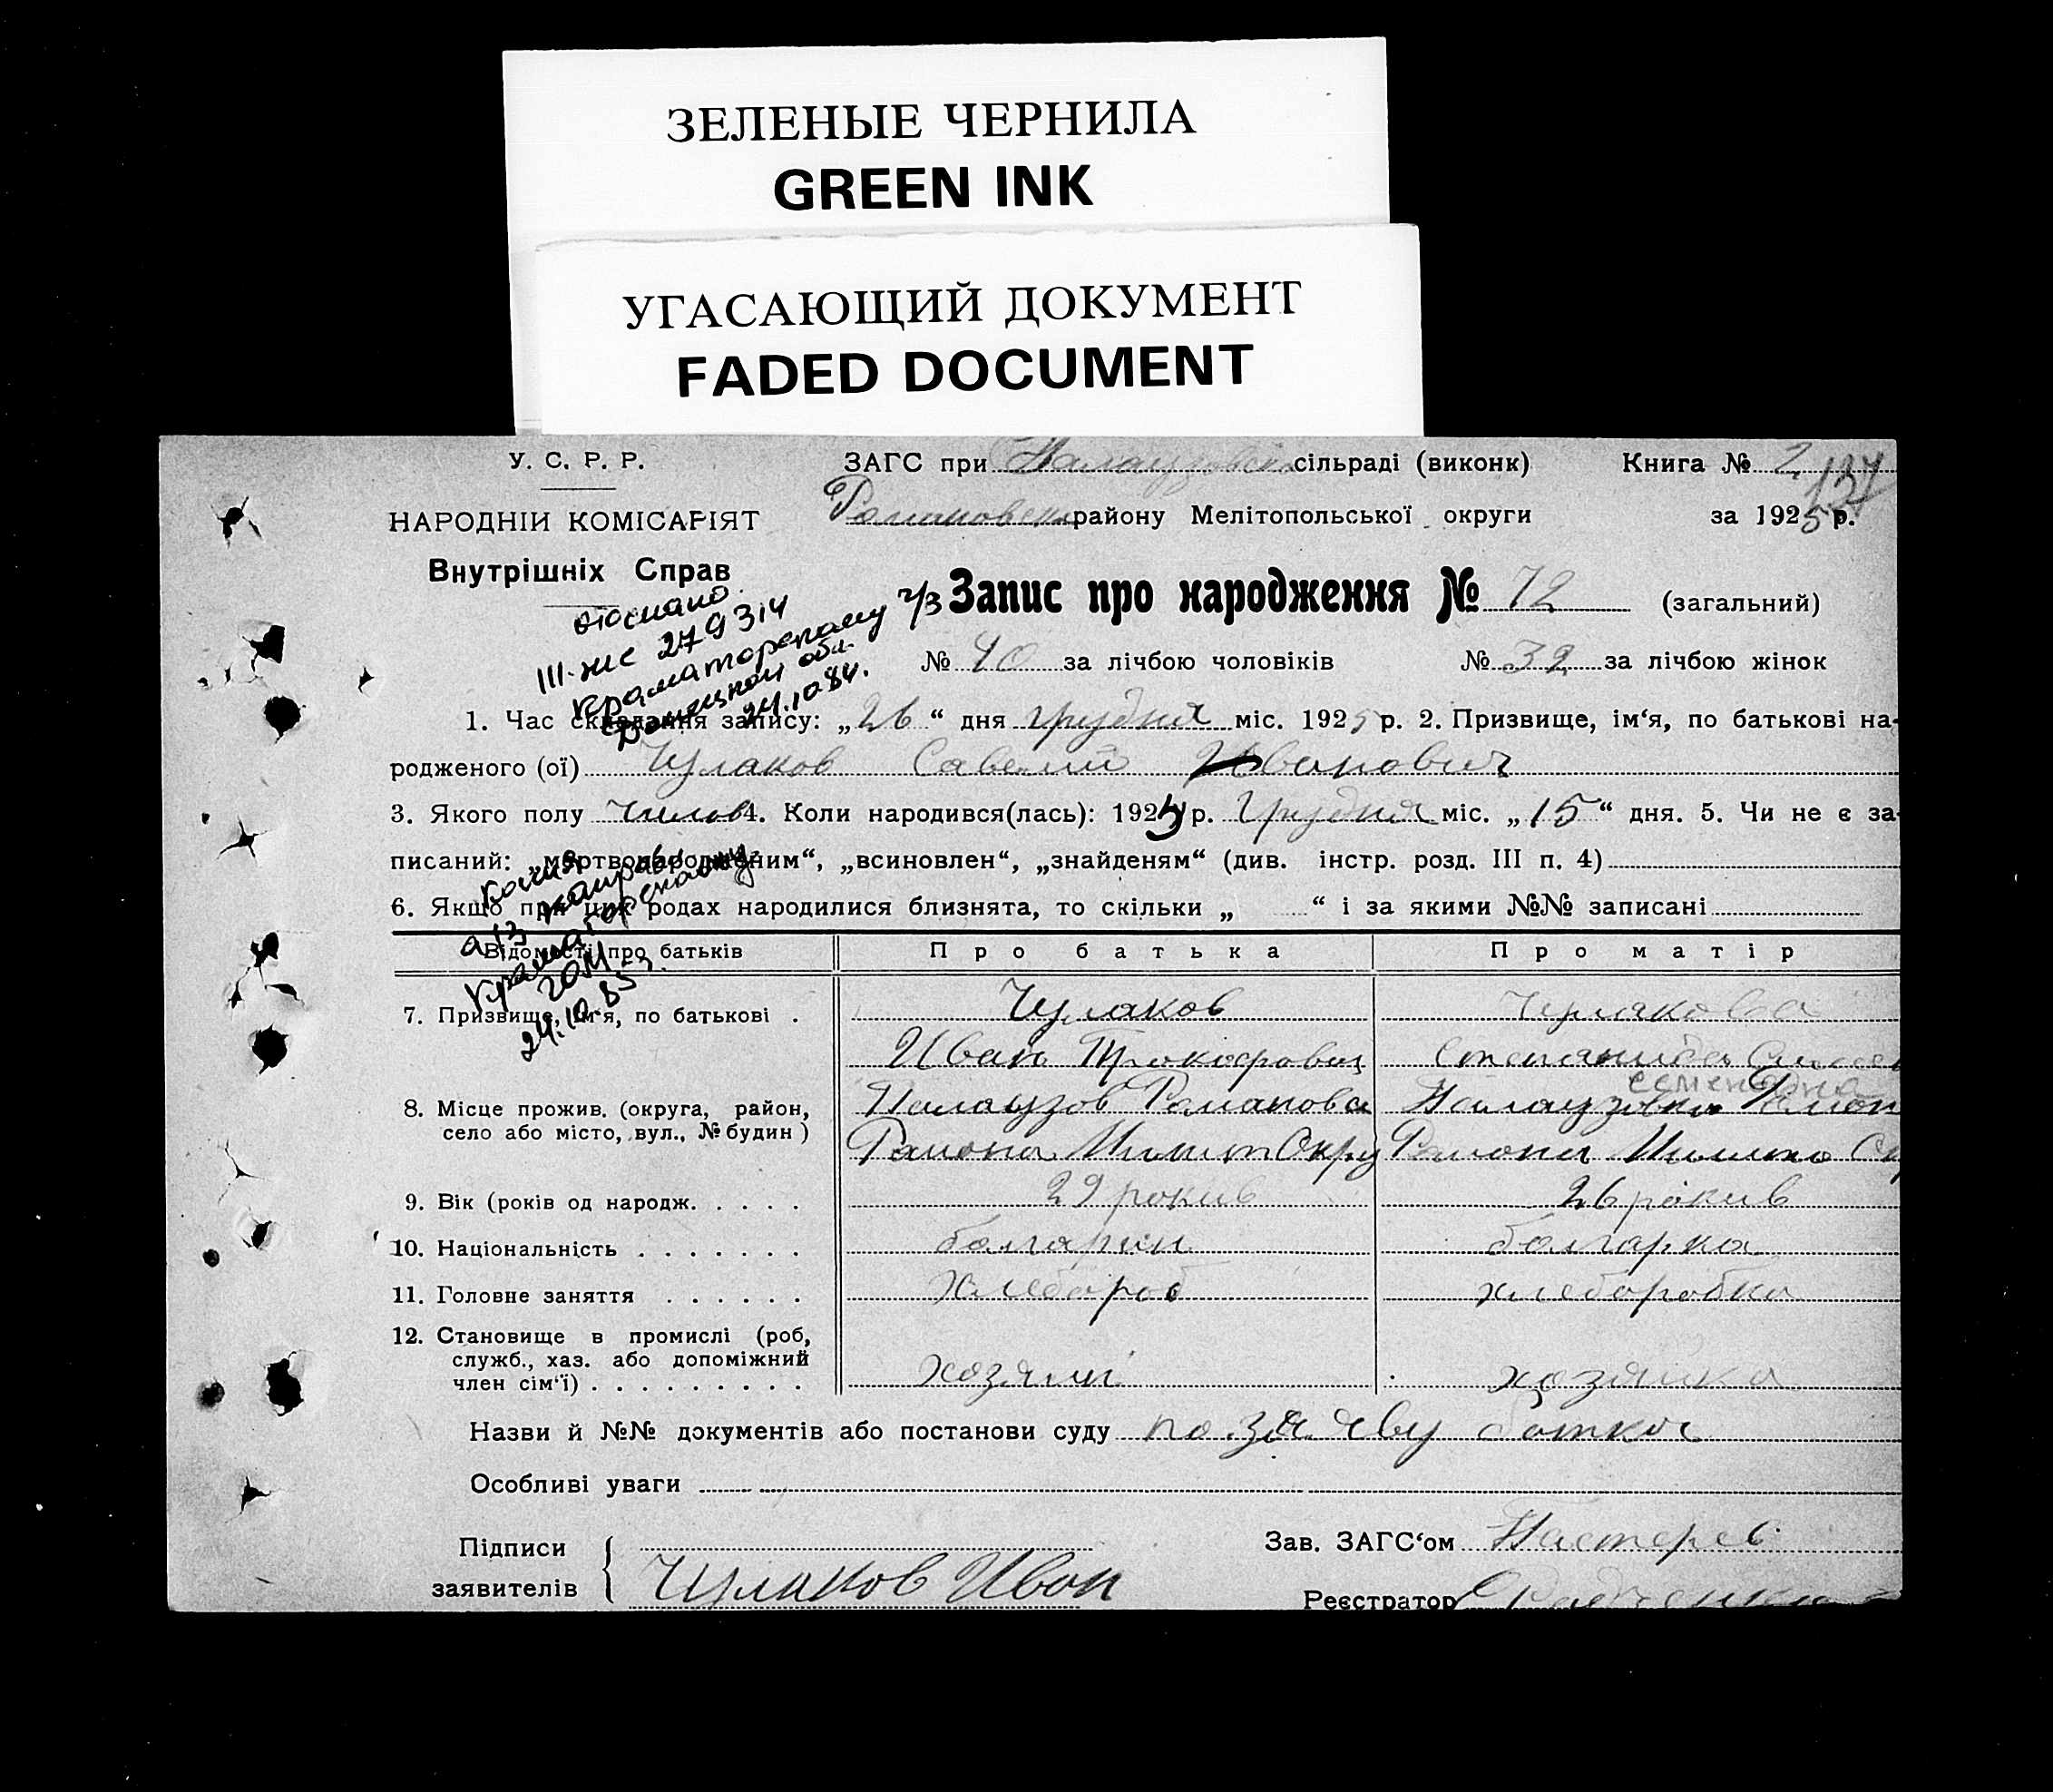 ЗЕЛЕНЫЕ ЧЕРНИЛА
GREEN INK
УГАСАЮЩИЙ ДОКУМЕНТ
FADED DOCUMENT
У. С. Р. Р.
ЗАГС при сільраді (виконк)
Книга № 2
137
НАРОДНІЙ КОМІСАРІЯТ
району Мелітопольської округи
за 1925 р.
Внутрішніх Справ
отослано
III-же 279314
Краматорскому
Донецкой обл.
24.10.84.
Запис про народження № 72 (загальний)
№ 40 за лічбою чоловіків
№ 32 за лічбою жінок
1. Час складання запису: „26“ дня грудня міс. 1925 р. 2. Призвище, ім‘я, по батькові на-
родженого (ої) Чулаков Савелий Иванович
3. Якого полу 4. Коли народився(лась): 192 р. Грудня міс. „15“ дня. 5. Чи не є за-
писаний: „мертвонародженим“, „всиновлен“, „знайденям“ (див. інстр. розд. III п. 4)
6. Якщо при цих родах народилися близнята, то скільки „ “ і за якими №№ записані
копия
а/з направ.
24.10.83
Відомості про батьків
Про батька
Про матір
7. Призвище, ім‘я, по батькові .
Чулаков
Чулакова
Иван Прокофович
Степанида
8. Місце прожив. (округа, район,
село або місто, вул., № будин)
Района
Района
9. Вік (років од народж. . . . .
29 рокив
26 рокив
10. Національність . . . . . . .
болгарин
болгарка
11. Головне заняття . . . . . .
хлебороб
хлеборобка
12. Становище в промислі (роб,
служб., хаз. або допоміжний
член сім‘ї) . . . . . . . . .
хозяин
хозяйка
Назви й №№ документів або постанови суду по заяву батка
Особливі уваги
Підписи
заявителів
Чулаков Иван
Зав. ЗАГС‘ом
Реєстратор